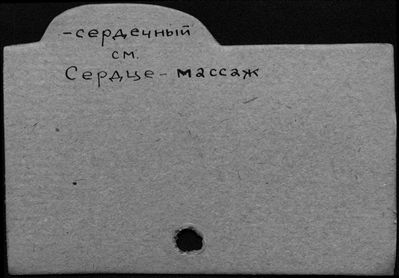 -сердечный
см.
Сердце - массаж